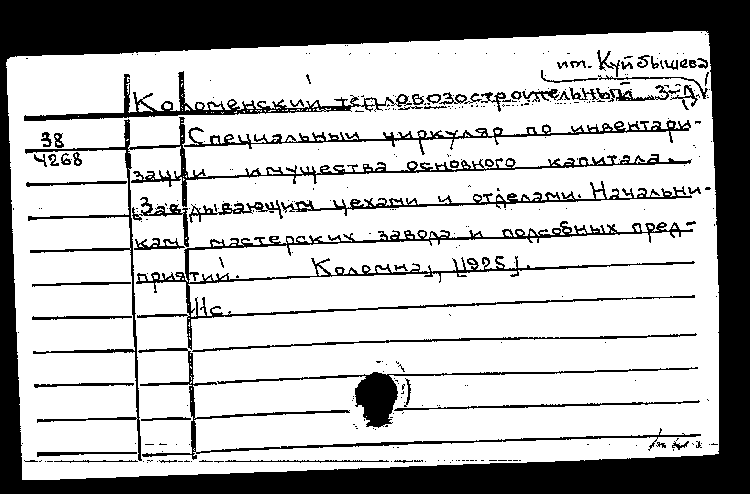 им. Куйбышева
Коломенский тепловозостроительный з-д
38
4268
Специальный циркуляр по инвентари-
зации имущества основного капитала.
[Заведывающим цехами и отделами. Начальни-
кам мастерских завода и подсобных пред-
приятий. Коломна], [1925].
11с.